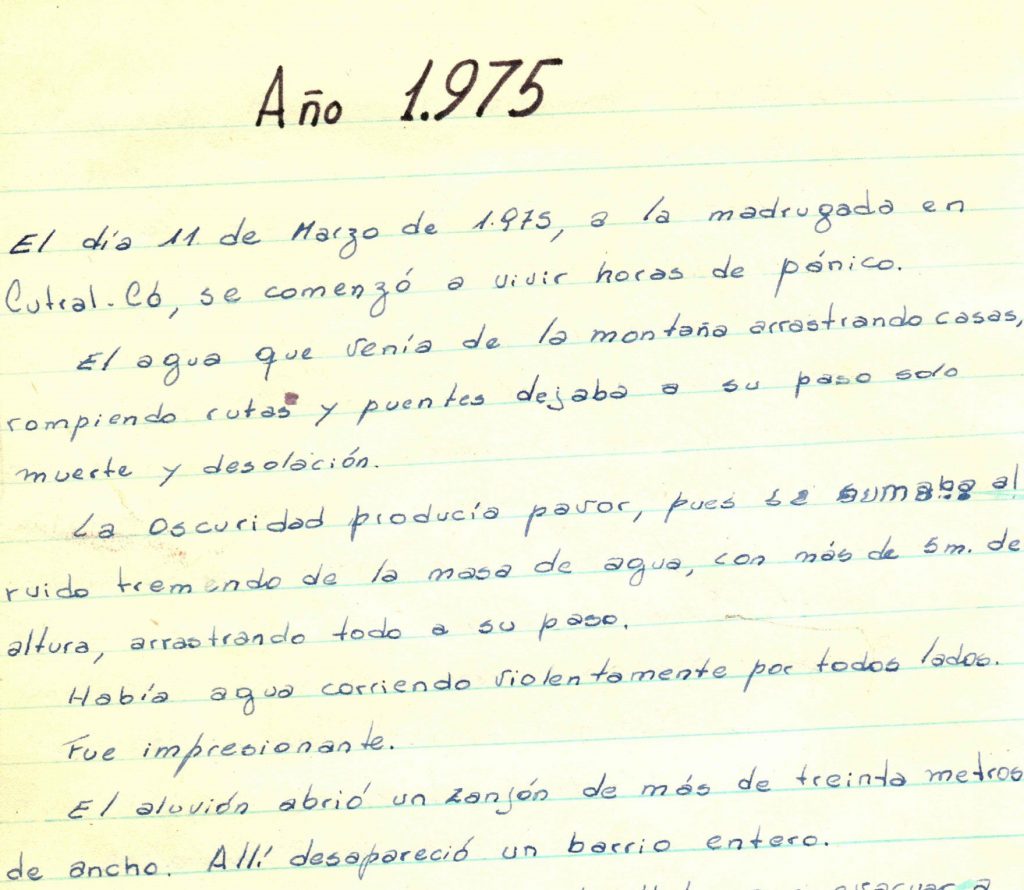 Año 1.975
El día 11 de Marzo de 1.975, a la madrugada en
Cutral-Có, se comenzó a vivir horas de pánico.
El agua que venía de la montaña arrastrando casas,
rompiendo rutas y puentes dejaba a su paso solo
muerte y desolación.
La oscuridad producía pavor, pues se sumaba al
ruido tremendo de la masa de agua, con más de 5m. de
altura, arrastrando todo a su paso.
Había agua corriendo violentamente por todos lados.
Fue impresionante.
El aluvión abrió un zanjón de más de treinta metros
de ancho. Allí desapareció un barrio entero.